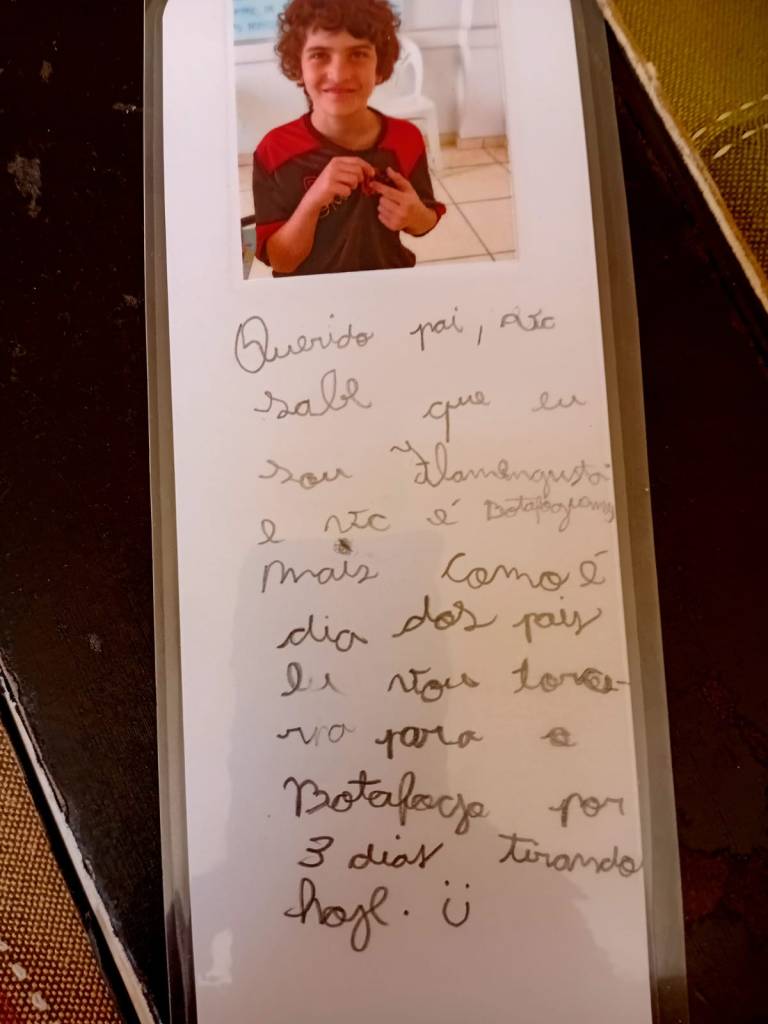 Querido pai, vc
sabe que eu
sou Flamenguista
e vc é Botafoguense
mais como é
dia dos pais
eu vou torce-
para o
Botafogo por
3 dias tirando
hoje. Ü